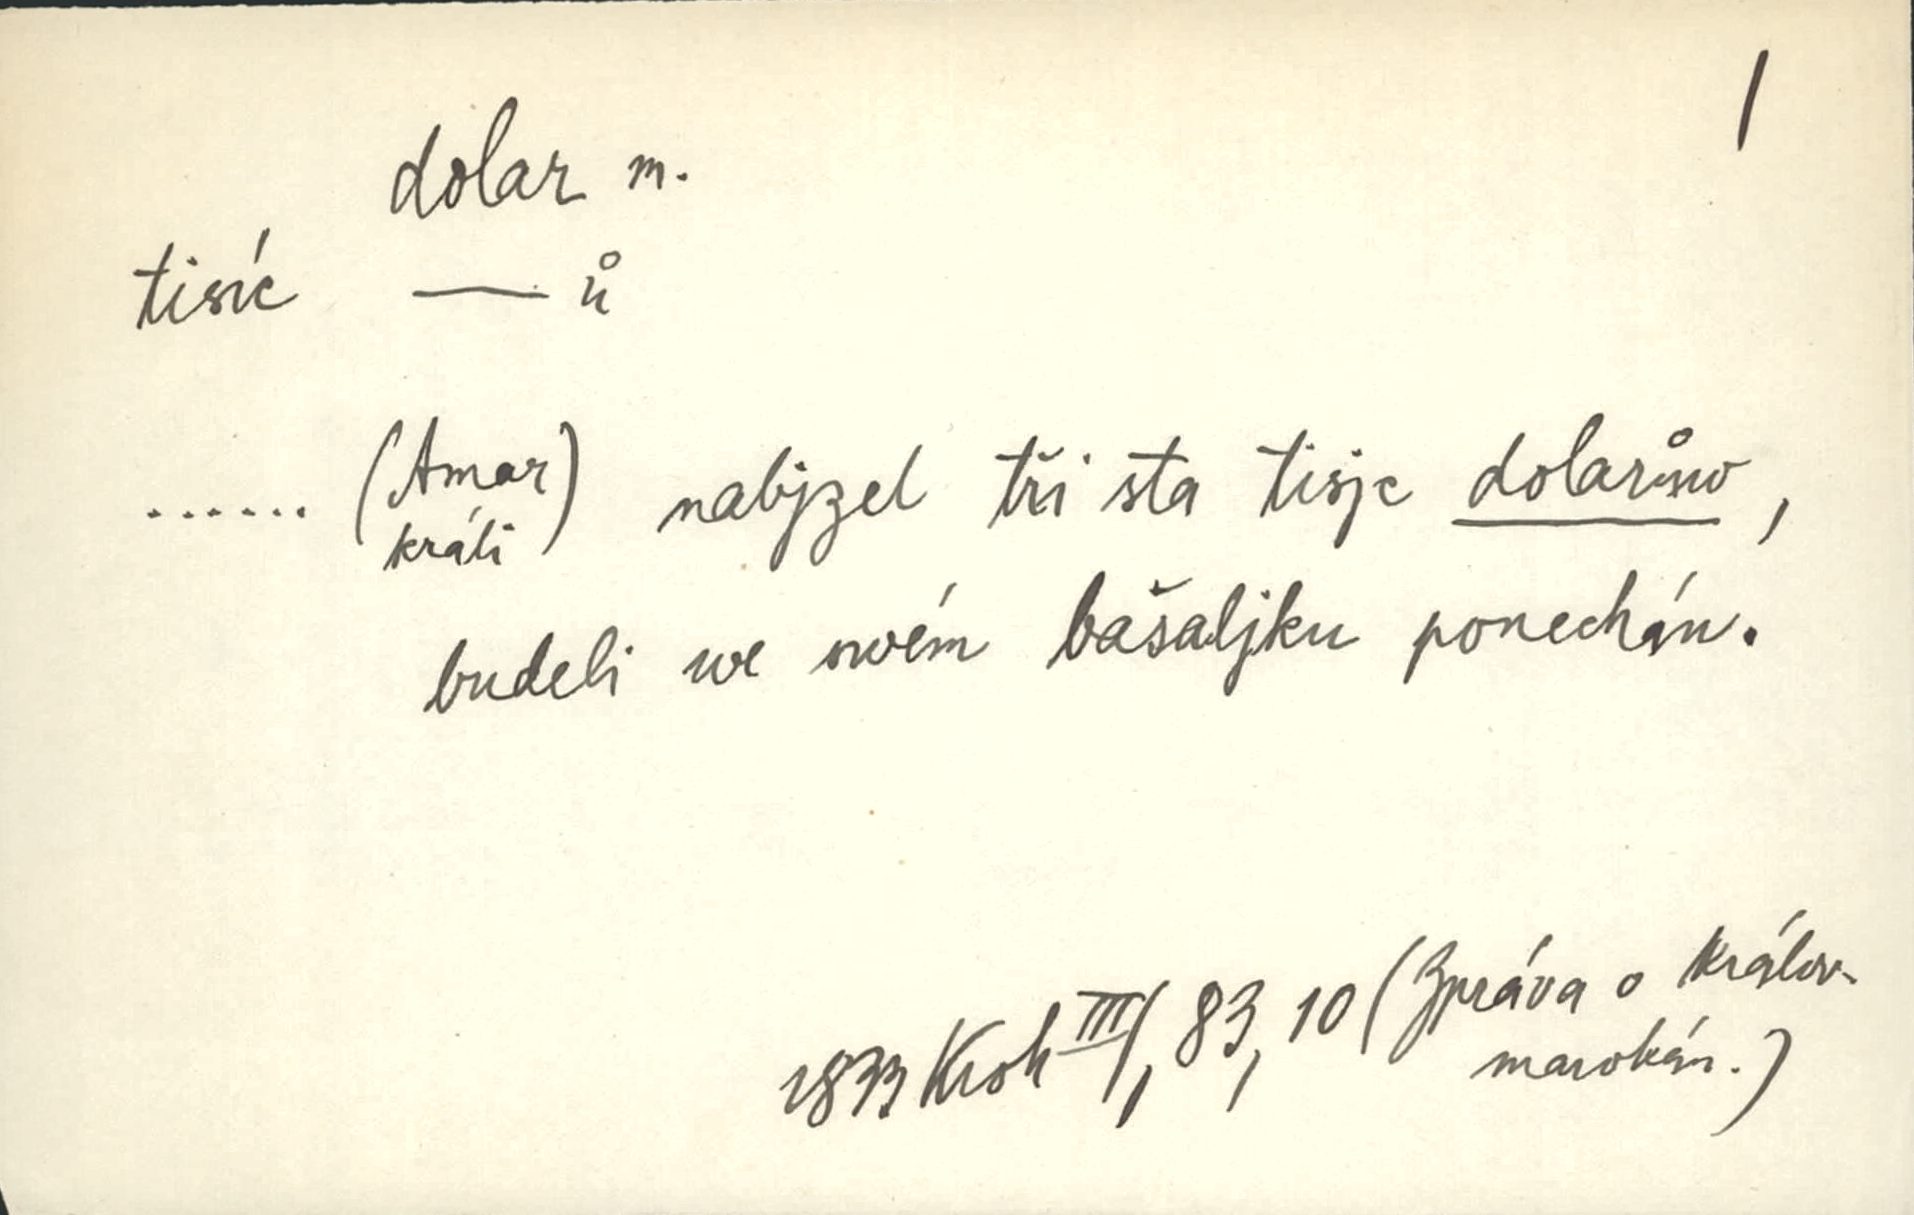 1
dolar m.
tisíc — ů
...... (Amar králi) nabjzel tři sta tisjc dolarůw,
budeli we swém bašaljku ponechán.
1833 Krok III/1, 83, 10 (Zpráva o králov.
marokán.)